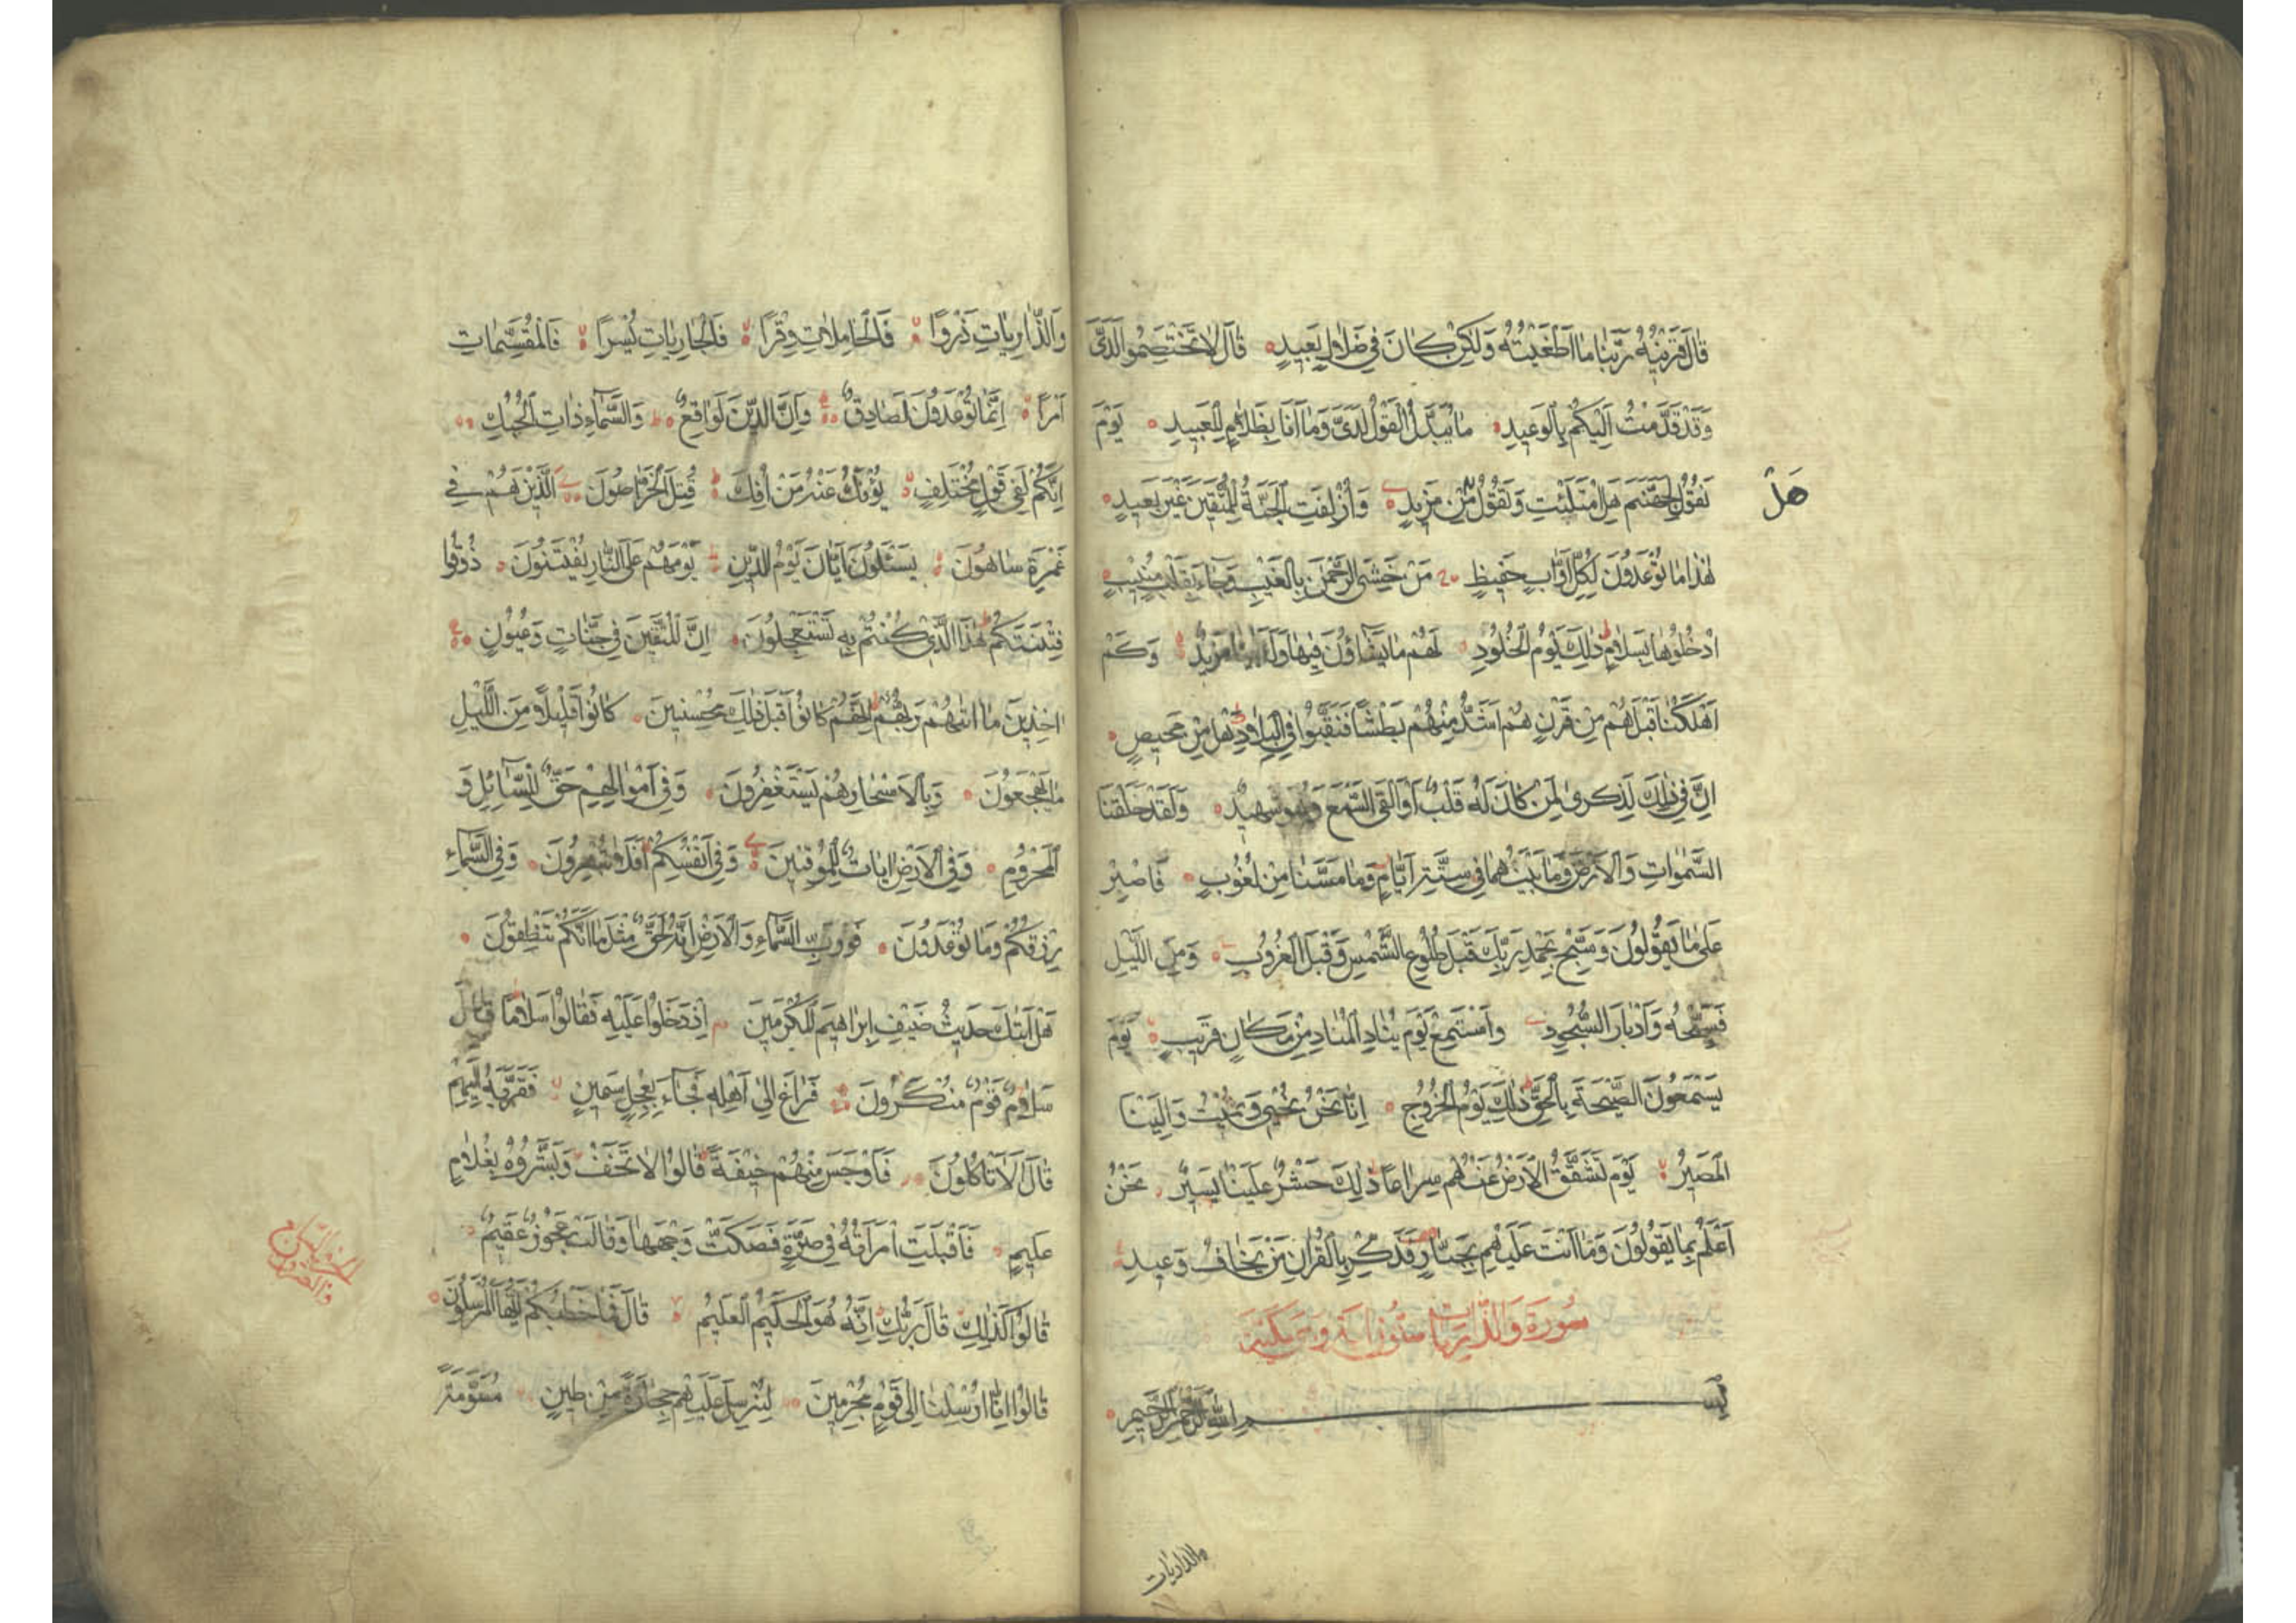 قَالَ قَرِينُهُ رَبَّنَا مَا اَطْغَيْتُهُ وَلٰكِنْ كَانَ فِي ضَلَالٍ بَعِيدٍ قَالَ لَا تَخْتَصِمُوا لَدَيَّ
وَقَدْ قَدَّمْتُ اِلَيْكُمْ بِالْوَعِيدِ مَا يُبَدَّلُ الْقَوْلُ لَدَيَّ وَمَا اَنَا بِظَلَّامٍ لِلْعَبِيدِ يَوْمَ
نَقُولُ لِجَهَنَّمَ هَلِ امْتَلَئْتِ وَتَقُولُ مِنْ مَزِيدٍ وَاُزْلِفَتِ الْجَنَّةُ لِلْمُتَّقِينَ غَيْرَ بَعِيدٍ
هَلْ
هٰذَا مَا تُوعَدُونَ لِكُلِّ اَوَّابٍ حَفِيظٍ مَنْ خَشِيَ الرَّحْمٰنَ بِالْغَيْبِ وَجَاءَ بِقَلْبٍ مُنِيبٍ
اُدْخُلُوهَا بِسَلَامٍ ذٰلِكَ يَوْمُ الْخُلُودِ لَهُمْ مَا يَشَاؤُنَ فِيهَا وَلَدَيْنَا مَزِيدٌ وَكَمْ
اَهْلَكْنَا قَبْلَهُمْ مِنْ قَرْنٍ هُمْ اَشَدُّ مِنْهُمْ بَطْشًا فَنَقَّبُوا فِي الْبِلَادِ هَلْ مِنْ مَحِيصٍ
اِنَّ فِي ذٰلِكَ لَذِكْرٰى لِمَنْ كَانَ لَهُ قَلْبٌ اَوْ اَلْقَى السَّمْعَ وَهُوَ شَهِيدٌ وَلَقَدْ خَلَقْنَا
السَّمٰوَاتِ وَالْاَرْضَ وَمَا بَيْنَهُمَا فِي سِتَّةِ اَيَّامٍ وَمَا مَسَّنَا مِنْ لُغُوبٍ فَاصْبِرْ
عَلٰى مَا يَقُولُونَ وَسَبِّحْ بِحَمْدِ رَبِّكَ قَبْلَ طُلُوعِ الشَّمْسِ وَقَبْلَ الْغُرُوبِ وَمِنَ اللَّيْلِ
فَسَبِّحْهُ وَاَدْبَارَ السُّجُودِ وَاسْتَمِعْ يَوْمَ يُنَادِ الْمُنَادِ مِنْ مَكَانٍ قَرِيبٍ يَوْمَ
يَسْمَعُونَ الصَّيْحَةَ بِالْحَقِّ ذٰلِكَ يَوْمُ الْخُرُوجِ اِنَّا نَحْنُ نُحْيِي وَنُمِيتُ وَاِلَيْنَا
الْمَصِيرُ يَوْمَ تَشَقَّقُ الْاَرْضُ عَنْهُمْ سِرَاعًا ذٰلِكَ حَشْرٌ عَلَيْنَا يَسِيرٌ نَحْنُ
اَعْلَمُ بِمَا يَقُولُونَ وَمَا اَنْتَ عَلَيْهِمْ بِجَبَّارٍ فَذَكِّرْ بِالْقُرْاٰنِ مَنْ يَخَافُ وَعِيدِ
سُورَةُ وَالذَّارِيَاتِ سِتُّونَ اٰيَةً وَهِيَ مَكِّيَّةٌ
بِسْمِ اللّٰهِ الرَّحْمٰنِ الرَّحِيمِ
والذاريات
وَالذَّارِيَاتِ ذَرْوًا فَالْحَامِلَاتِ وِقْرًا فَالْجَارِيَاتِ يُسْرًا فَالْمُقَسِّمَاتِ
اَمْرًا اِنَّمَا تُوعَدُونَ لَصَادِقٌ وَاِنَّ الدِّينَ لَوَاقِعٌ وَالسَّمَاءِ ذَاتِ الْحُبُكِ
اِنَّكُمْ لَفِي قَوْلٍ مُخْتَلِفٍ يُؤْفَكُ عَنْهُ مَنْ اُفِكَ قُتِلَ الْخَرَّاصُونَ اَلَّذِينَ هُمْ فِي
غَمْرَةٍ سَاهُونَ يَسْئَلُونَ اَيَّانَ يَوْمُ الدِّينِ يَوْمَ هُمْ عَلَى النَّارِ يُفْتَنُونَ ذُوقُوا
فِتْنَتَكُمْ هٰذَا الَّذِي كُنْتُمْ بِهِ تَسْتَعْجِلُونَ اِنَّ الْمُتَّقِينَ فِي جَنَّاتٍ وَعُيُونٍ
اٰخِذِينَ مَا اٰتٰيهُمْ رَبُّهُمْ اِنَّهُمْ كَانُوا قَبْلَ ذٰلِكَ مُحْسِنِينَ كَانُوا قَلِيلًا مِنَ اللَّيْلِ
مَا يَهْجَعُونَ وَبِالْاَسْحَارِ هُمْ يَسْتَغْفِرُونَ وَفِي اَمْوَالِهِمْ حَقٌّ لِلسَّائِلِ وَ
الْمَحْرُومِ وَفِي الْاَرْضِ اٰيَاتٌ لِلْمُوقِنِينَ وَفِي اَنْفُسِكُمْ اَفَلَا تُبْصِرُونَ وَفِي السَّمَاءِ
رِزْقُكُمْ وَمَا تُوعَدُونَ فَوَرَبِّ السَّمَاءِ وَالْاَرْضِ اِنَّهُ لَحَقٌّ مِثْلَ مَا اَنَّكُمْ تَنْطِقُونَ
هَلْ اَتٰيكَ حَدِيثُ ضَيْفِ اِبْرَاهِيمَ الْمُكْرَمِينَ اِذْ دَخَلُوا عَلَيْهِ فَقَالُوا سَلَامًا قَالَ
سَلَامٌ قَوْمٌ مُنْكَرُونَ فَرَاغَ اِلٰى اَهْلِهِ فَجَاءَ بِعِجْلٍ سَمِينٍ فَقَرَّبَهُ اِلَيْهِمْ
قَالَ اَلَا تَاْكُلُونَ فَاَوْجَسَ مِنْهُمْ خِيفَةً قَالُوا لَا تَخَفْ وَبَشَّرُوهُ بِغُلَامٍ
عَلِيمٍ فَاَقْبَلَتِ امْرَاَتُهُ فِي صَرَّةٍ فَصَكَّتْ وَجْهَهَا وَقَالَتْ عَجُوزٌ عَقِيمٌ
قَالُوا كَذٰلِكِ قَالَ رَبُّكِ اِنَّهُ هُوَ الْحَكِيمُ الْعَلِيمُ قَالَ فَمَا خَطْبُكُمْ اَيُّهَا الْمُرْسَلُونَ
قَالُوا اِنَّا اُرْسِلْنَا اِلٰى قَوْمٍ مُجْرِمِينَ لِنُرْسِلَ عَلَيْهِمْ حِجَارَةً مِنْ طِينٍ مُسَوَّمَةً